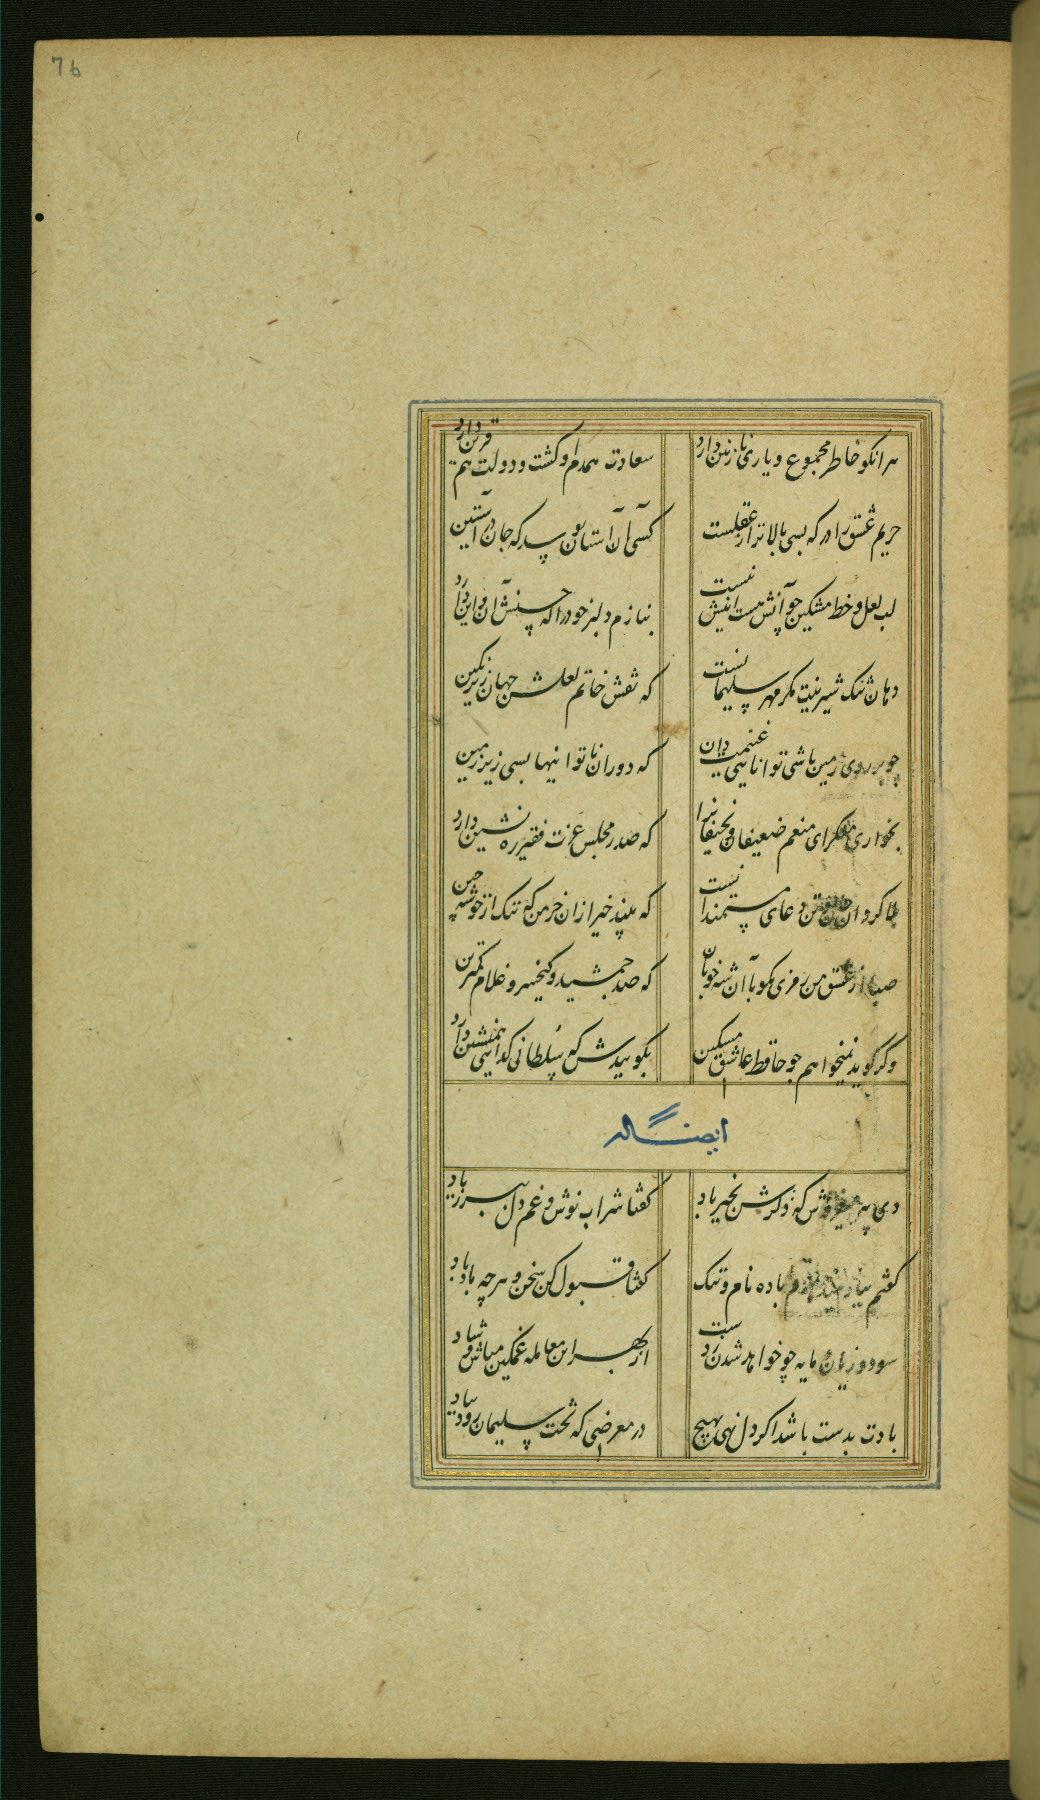 76
هرانکو خاطر مجموع و یاری نازنین دارد
سعادت همدم او کشت و دولت هم قرین دارد
حریم عشق را درکه بسی بالاتر از عقلست
کسی آن آستان بوسد که جان در آستین
لب لعل و خط مشکین جو آنش هست اینش نیست
بنازم دلبر خود را که حسنش آن و این دارد
دهان تنک شیرینت مکر مهر سلیمانست
که نقش خاتم لعلش جهان زیر نکین
جو بر روی زمین باشی توانایی غنیمت دان
که دوران ناتوانیها بسی زیر زمین
بخواری منکر ای منعم ضعیفان و نحیفانرا
که صدر مجلس عزت فقیر ره نشین دارد
بلا کردان جان و تن دعای مستمندانست
که بیند خیر ازان خرمن که ننک از خوشه چین
صبا از عشق من رمزی بکو با آن شه خوبان
که صد جمشید و کیخسرو غلام کمترین
وکر کوید نمیخواهم جو حافظ عاشق مسکین
بکوییدش که سلطانی کدایی همنشین دارد
ایضاله
دی پیر میفروش که ذکرش بخیر باد
کفتا شراب نوش و غم دل ببر زیاد
کفتم بباد میدهدم باده نام و ننک
کفتا قبول کن سخن و هرچه باد باد
سود و زیان مایه چو خواهد شدن ز دست
از بهر این معامله غمکین مباش و شاد
بادت بدست باشد اکر دل نهی بهیچ
در معرضی که تخت سلیمان رود بباد